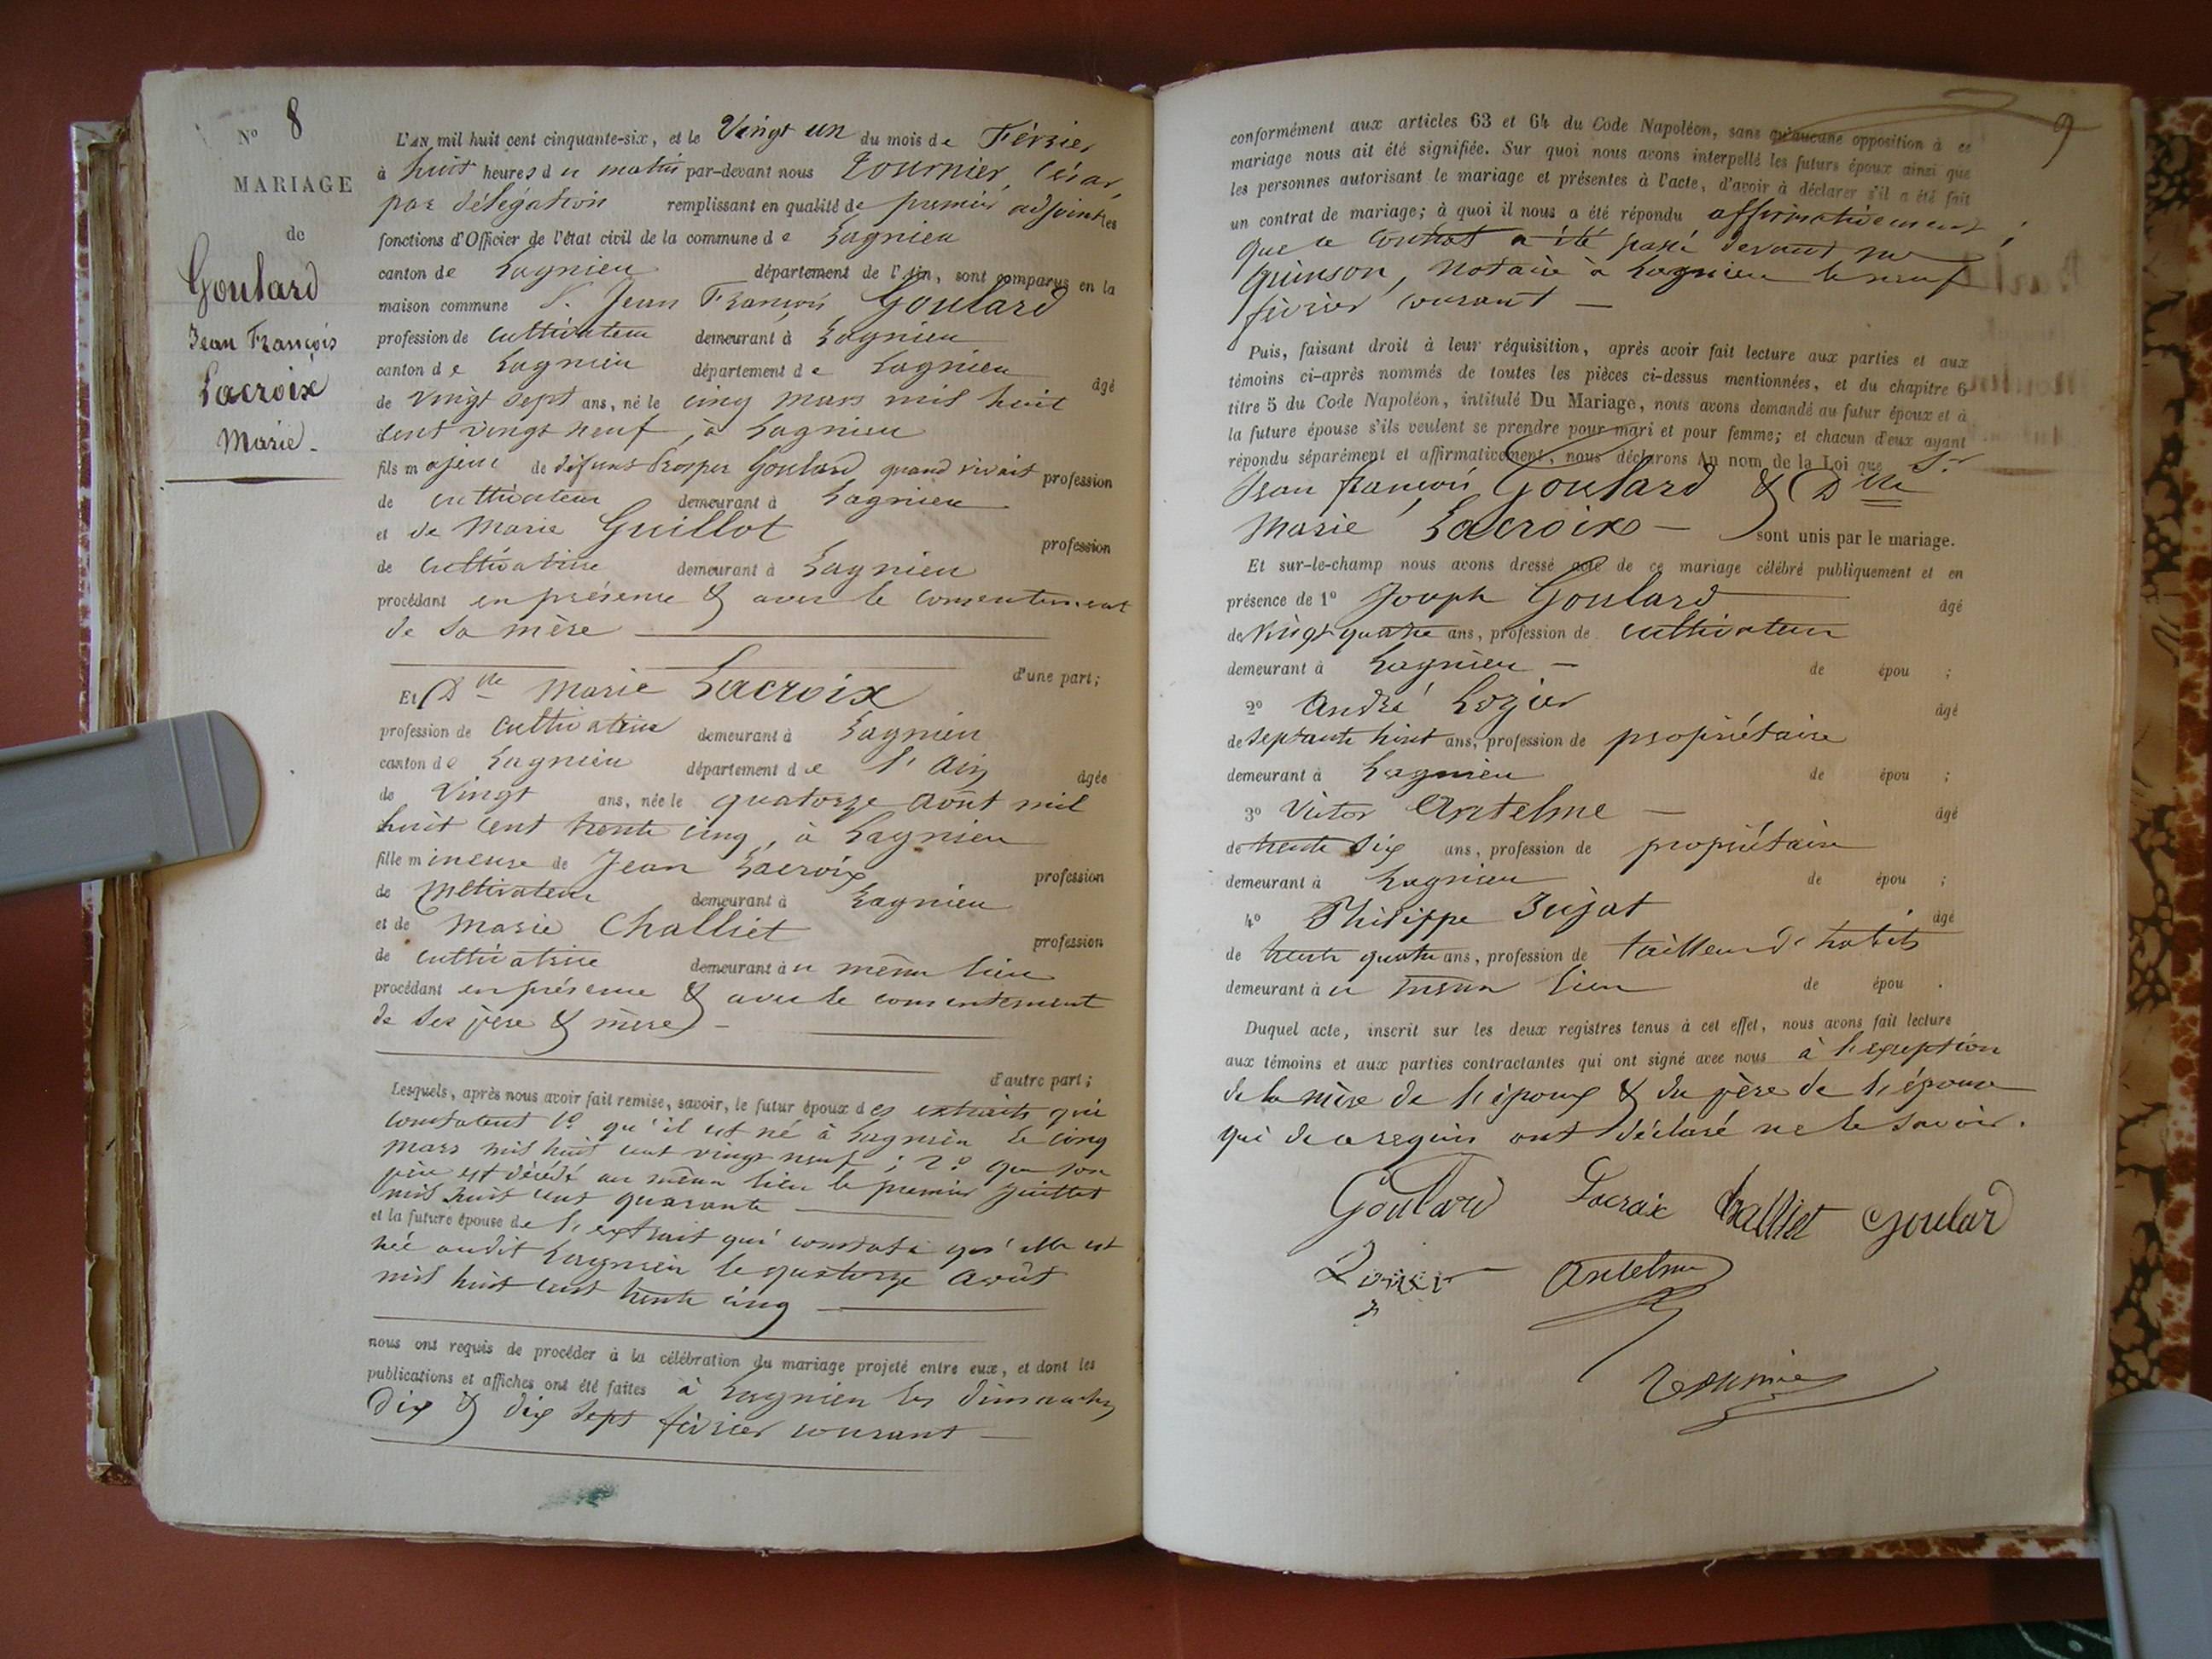 N° 8
MARIAGE
de
Goulard
Jean François
Lacroix
Marie.
L'AN mil huit cent cinquante-six, et le Vingt un du mois de Février
à huit heures du matin par-devant nous Tournier, César,
par délégation remplissant en qualité de premier adjoint les
fonctions d'Officier de l'état civil de la commune de Lagnieu
canton de Lagnieu département de l'Ain, sont comparus en la
maison commune S. Jean François Goulard
profession de cultivateur demeurant à Lagnieu
canton de Lagnieu département de Lagnieu âgé
de vingt sept ans, né le cinq mars mil huit
cent vingt neuf, à Lagnieu
fils majeur de défunt Prosper Goulard quand vivait profession
de cultivateur demeurant à Lagnieu
et de Marie Guillot profession
de cultivatrice demeurant à Lagnieu
procédant en présence & avec le consentement
de sa mère
d'une part;
Et Dlle Marie Lacroix
profession de cultivatrice demeurant à Lagnieu
canton de Lagnieu département de l'Ain âgée
de Vingt ans, née le quatorze Août mil
huit cent trente cinq, à Lagnieu
fille mineure de Jean Lacroix profession
de cultivateur demeurant à Lagnieu
et de Marie Challiet profession
de cultivatrice demeurant à u même lieu
procédant en présence & avec le consentement
de ses père & mère
d'autre part;
Lesquels, après nous avoir fait remise, savoir, le futur époux des extraits qui
constatent 1° qu'il est né à Lagnieu le cinq
mars mil huit cent vingt neuf; 2° que son
père est décédé au même lieu le premier juillet
mil huit cent quarante
et la future épouse de l'extrait qui constate qu'elle est
née audit Lagnieu le quatorze Août
mil huit cent trente cinq
nous ont requis de procéder à la célébration du mariage projeté entre eux, et dont les
publications et affiches ont été faites à Lagnieu les dimanches
dix & dix sept février courant
9
conformément aux articles 63 et 64 du Code Napoléon, sans qu'aucune opposition à ce
mariage nous ait été signifiée. Sur quoi nous avons interpellé les futurs époux ainsi que
les personnes autorisant le mariage et présentes à l'acte, d'avoir à déclarer s'il a été fait
un contrat de mariage; à quoi il nous a été répondu affirmativement;
que le contrat a été passé devant me
Grinson, notaire à Lagnieu le neuf
février courant
Puis, faisant droit à leur réquisition, après avoir fait lecture aux parties et aux
témoins ci-après nommés de toutes les pièces ci-dessus mentionnées, et du chapitre 6
titre 5 du Code Napoléon, intitulé Du Mariage, nous avons demandé au futur époux et à
la future épouse s'ils veulent se prendre pour mari et pour femme; et chacun d'eux ayant
répondu séparément et affirmativement, nous déclarons Au nom de la Loi que Sr
Jean François Goulard & Dlle
Marie Lacroix sont unis par le mariage.
Et sur-le-champ nous avons dressé acte de ce mariage célébré publiquement et en
présence de 1° Joseph Goulard âgé
de vingt quatre ans, profession de cultivateur
demeurant à Lagnieu de épou ;
2° André Lozier âgé
de septante huit ans, profession de propriétaire
demeurant à Lagnieu de épou ;
3° Victor Antelme âgé
de trente six ans, profession de propriétaire
demeurant à Lagnieu de épou ;
4° Philippe Jujat âgé
de trente quatre ans, profession de tailleur d'habits
demeurant à u même lieu de épou .
Duquel acte, inscrit sur les deux registres tenus à cet effet, nous avons fait lecture
aux témoins et aux parties contractantes qui ont signé avec nous à l'exception
de la mère de l'époux & du père de l'épouse
qui de ce requis ont déclaré ne le savoir.
Goulard Lacroix Challiet Goular
Antelme
Tournier